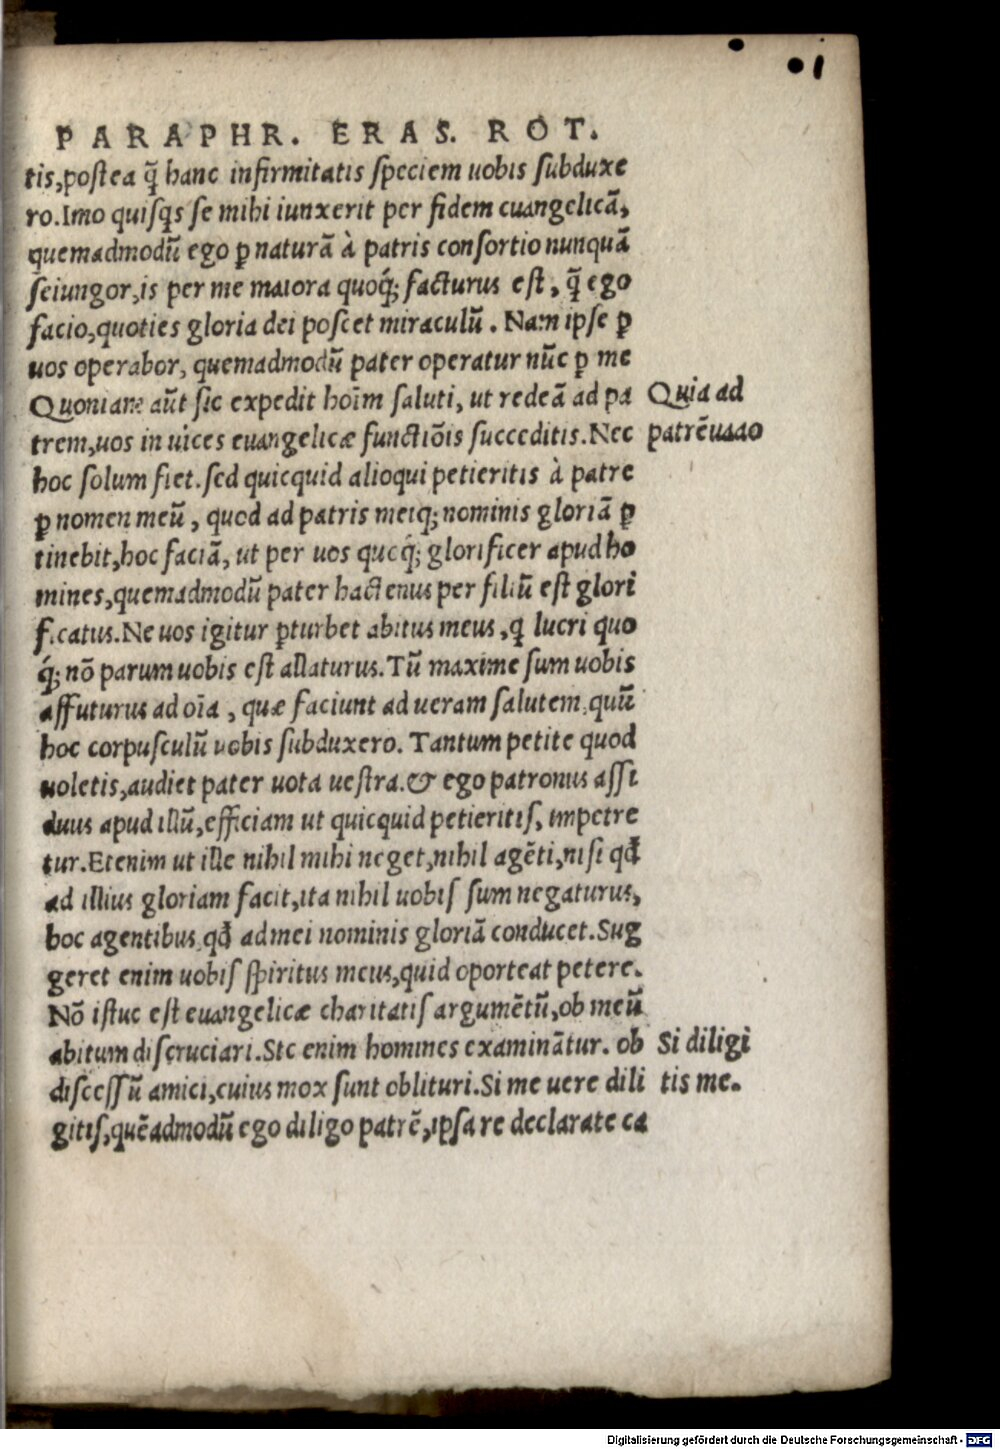 PARAPHR. ERAS. ROT.
tis, postea q̃ hanc infirmitatis speciem uobis subduxe
ro. Imo quisqs se mihi iunxerit per fidem euangelicã,
quemadmodũ ego ꝑ naturã à patris consortio nunquã
seiungor, is per me maiora quoq́; facturus est, q̃ ego
facio, quoties gloria dei poscet miraculũ. Nam ipse ꝑ
uos operabor, quemadmodũ pater operatur nũc ꝑ me
Quoniam aũt sic expedit hoĩm saluti, ut redeã ad pa
trem, uos in uices euangelicæ functiõis succeditis. Nec
hoc solum fiet. sed quicquid alioqui petieritis à patre
ꝑ nomen meũ, quod ad patris meiq; nominis gloriã ꝑ
tinebit, hoc faciã, ut per uos queq́; glorificer apud ho
mines, quemadmodũ pater hactenus per filiũ est glori
ficatus. Ne uos igitur ꝑturbet abitus meus, q lucri quo
q́; nõ parum uobis est allaturus. Tũ maxime sum uobis
affuturus ad oĩa, quæ faciunt ad ueram salutem, quũ
hoc corpusculũ uobis subduxero. Tantum petite quod
uoletis, audiet pater uota uestra. & ego patronus assi
duus apud illũ, efficiam ut quicquid petieritis, impetre
tur. Etenim ut ille nihil mihi neget, nihil agẽti, nisi qđ
ad illius gloriam facit, ita nihil uobis sum negaturus,
hoc agentibus, qđ ad mei nominis gloriã conducet. Sug
geret enim uobis spiritus meus, quid oporteat petere.
Nõ istuc est euangelicæ charitatis argumẽtũ, ob meũ
abitum discruciari. Sic enim homines examinãtur. ob
discessũ amici, cuius mox sunt oblituri. Si me uere dili
gitis, quẽadmodũ ego diligo patrẽ, ipsa re declarate ea
Quia ad
patrẽ uado
Si diligi
tis me.
Digitalisierung gefördert durch die Deutsche Forschungsgemeinschaft - DFG